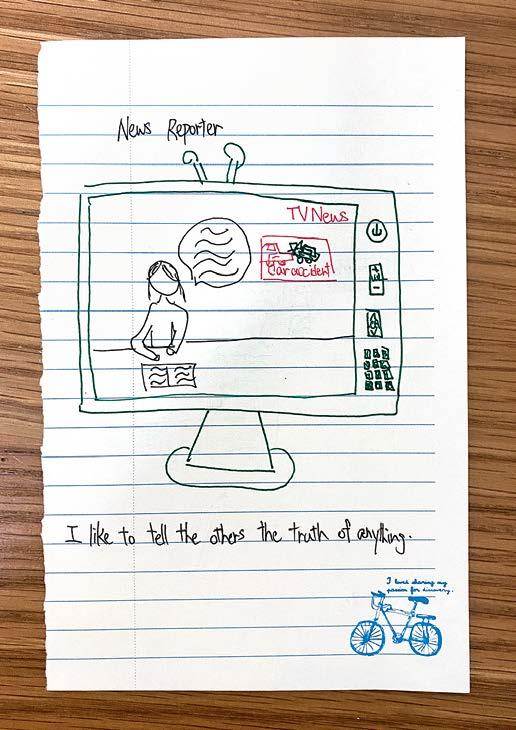 News Reporter
TV News
Car accident
I like to tell the others the truth of anything.
I love sharing my
passion for discovery.